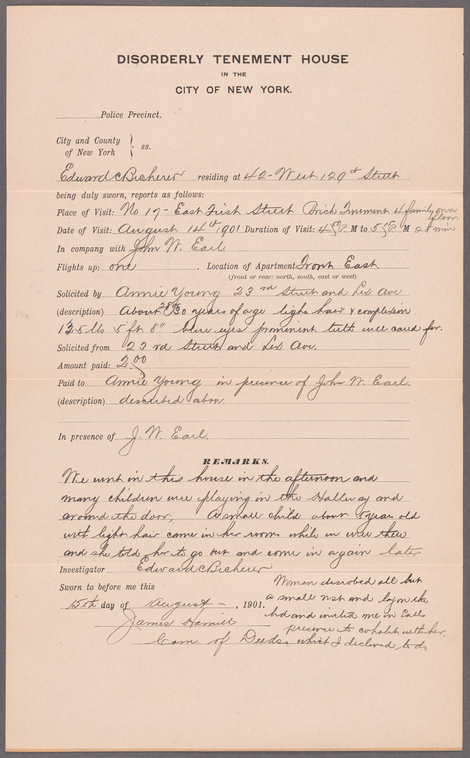 DISORDERLY TENEMENT HOUSE
IN THE
CITY OF NEW YORK.
Police Precinct.
City and County
of New York } ss.
Edward C Becherer residing at 42-West 129th Street
being duly sworn, reports as follows:
Place of Visit: No 17 - East First Street Brick Tenement 4 family on a floor
Date of Visit: August 14th 1901 Duration of Visit: M to M min
In company with John W. Earl
Flights up: one , Location of Apartment: Front East
(front or rear: north, south, east or west)
Solicited by Annie Young 23rd Street and Lex Ave
(description) About 28 to 30 years of age light hair & complexion
125 lbs 5 ft 8" blue eyes prominent teeth well cared for.
Solicited from 23rd Street and Lex Ave.
Amount paid: 2.00
Paid to Annie Young in presence of John W. Earl.
(description) described above
In presence of J. W. Earl.
REMARKS.
We went in this house in the afternoon and
many children were playing in the Hallway and
around the door, a small child about year old
with light hair came in her room while we were there
and she told her to go out and come in again later
Investigator Edward C Becherer
Sworn to before me this
15th day of August , 1901.
James Hamill
Com. of Deeds.
Woman disrobed all but
a small vest and lay on the
bed and invited me in Earls
presence to cohabit with her
which I declined to do